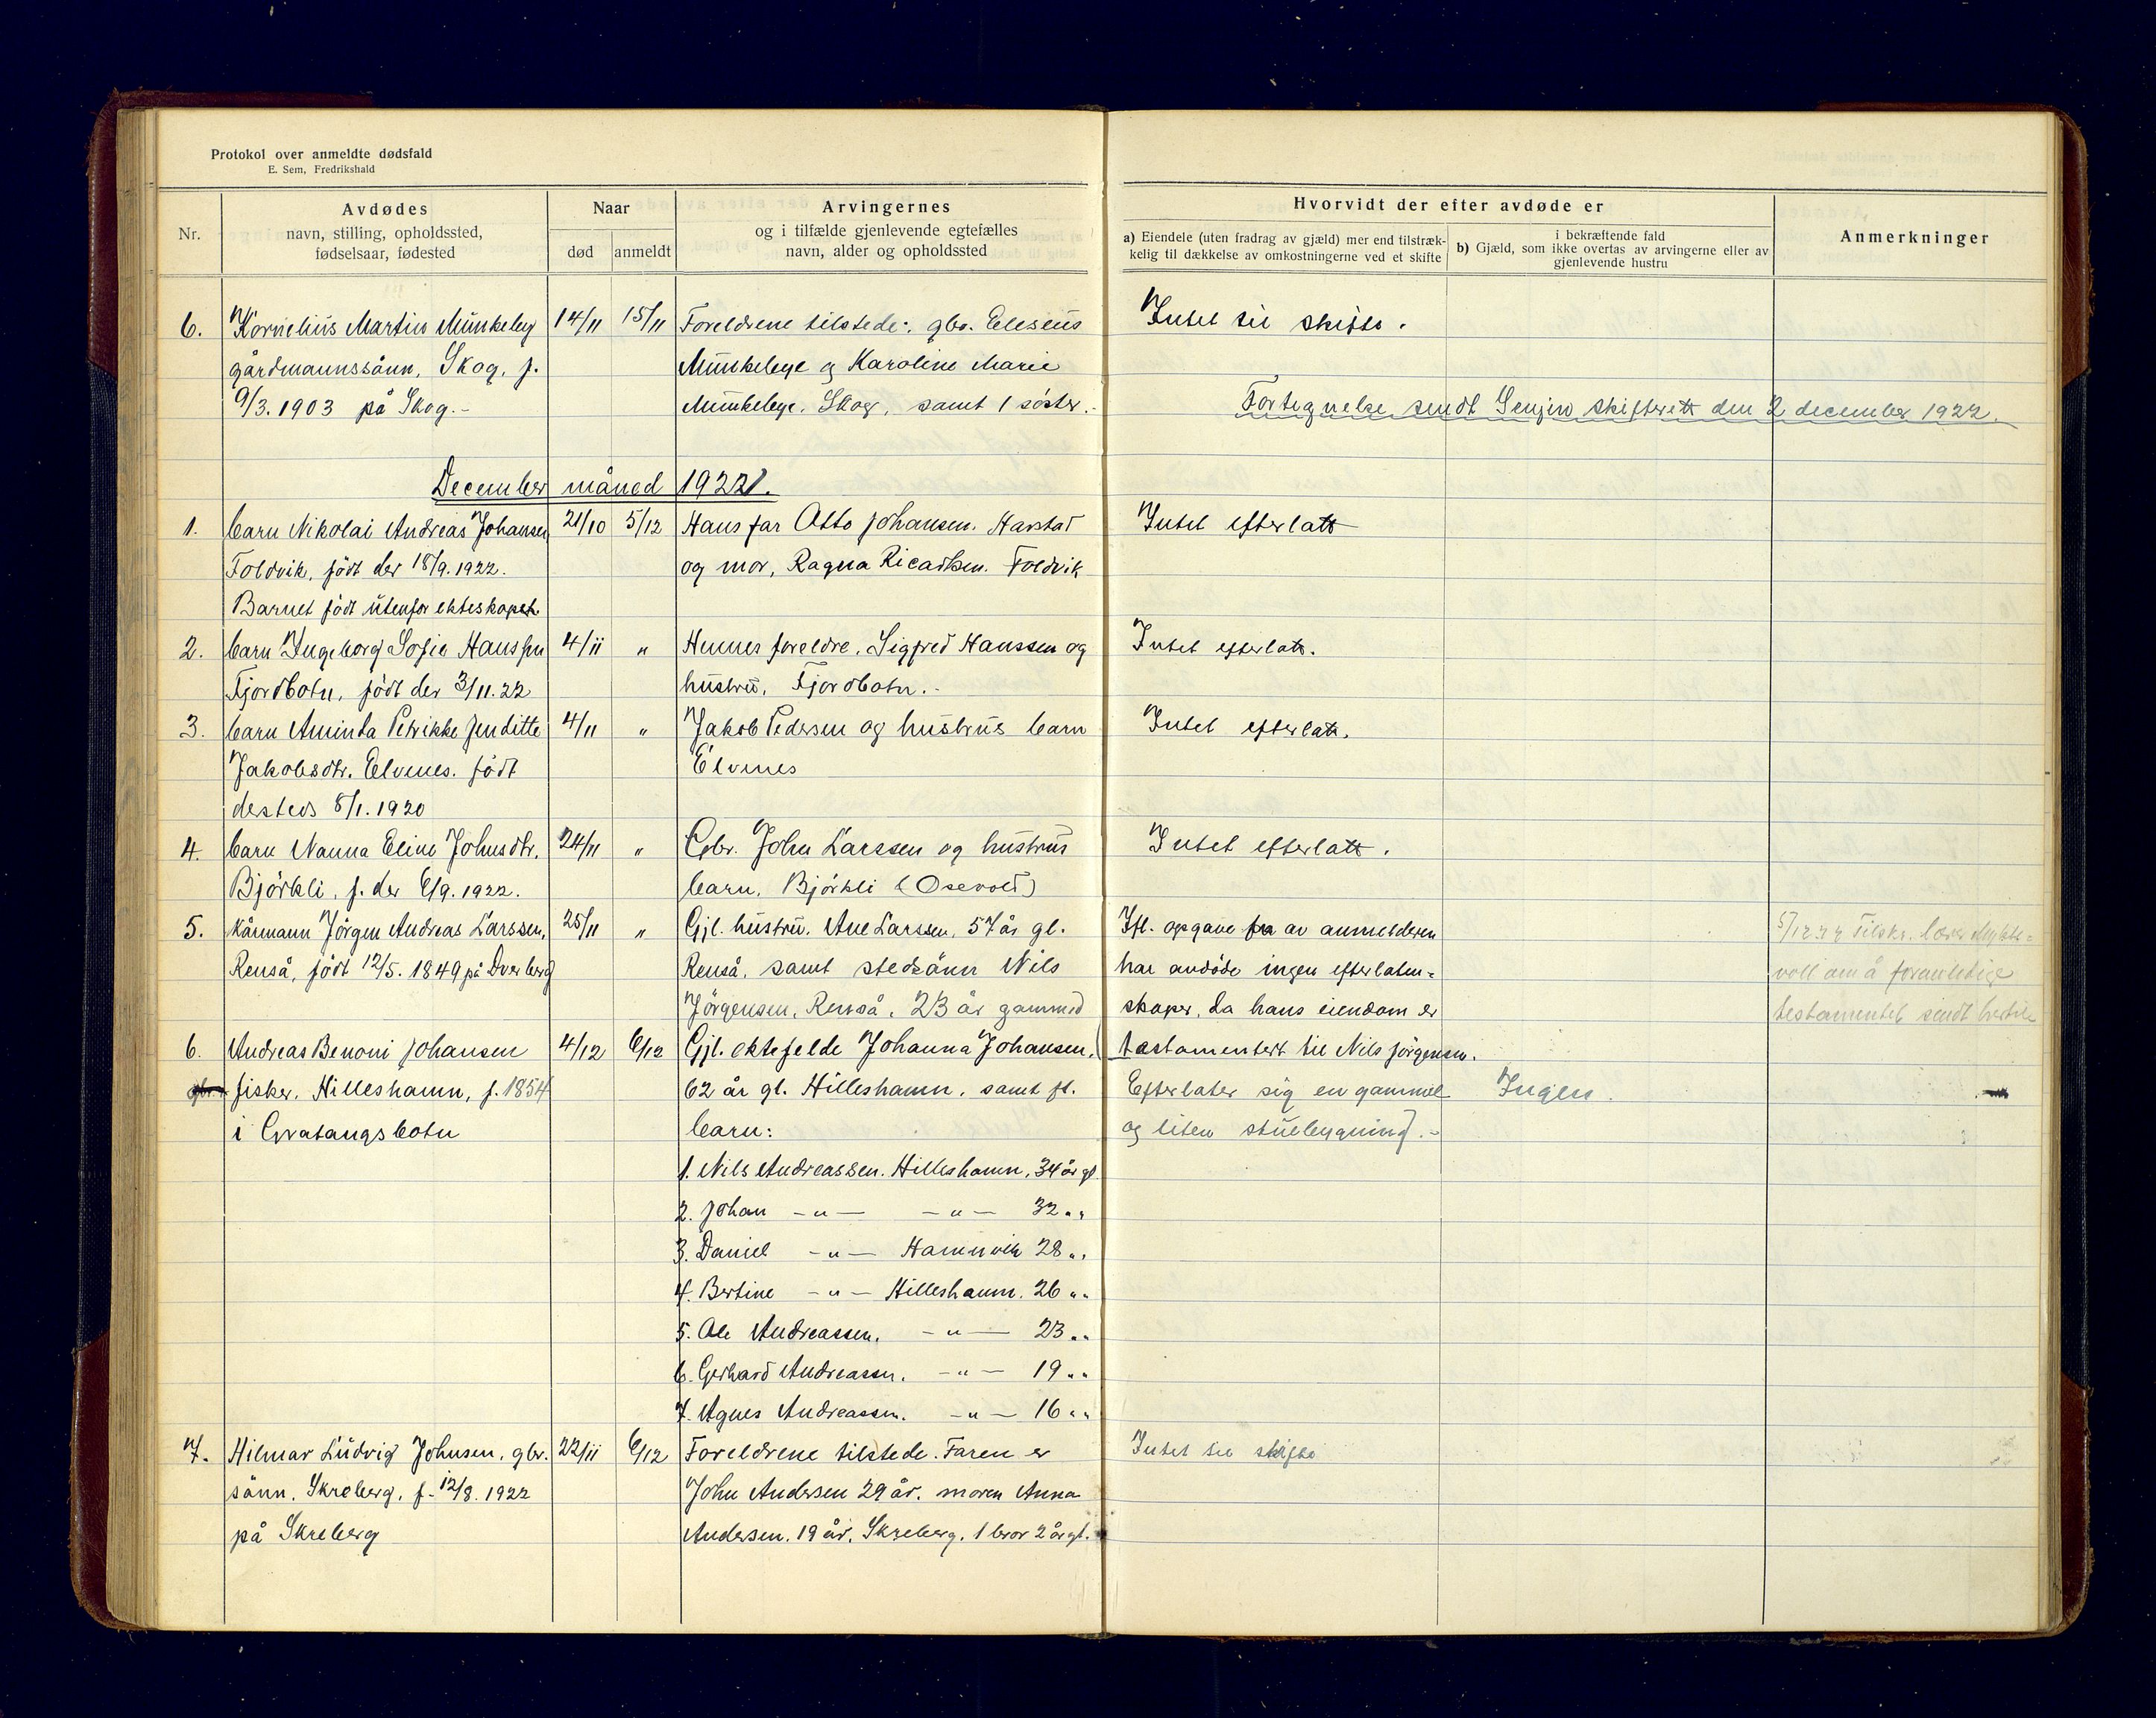 Protokol over anmeldte dødsfald
E. Sem, Fredrikshald
Nr.
Avdødes
navn, stilling, opholdssted,
fødselsaar, fødested
Naar
død
anmeldt
Arvingernes
og i tilfælde gjenlevende egtefælles
navn, alder og opholdssted
Hvorvidt der efter avdøde er
a) Eiendele (uten fradrag av gjæld) mer end tilstræk-
kelig til dækkelse av omkostningerne ved et skifte
i bekræftende fald
b) Gjæld, som ikke overtas av arvingerne eller av
gjenlevende hustru
Anmerkninger
6. Kornelius Martin Munkeby 14/11 15/11 Foreldrene tilstede: gbr. Eliseus Intet til skifte.
gårdmannssönn, Skog, f. Munkebye og Karoline Marie
9/3.1903 på Skog.- Munkebye, Skog, samt 1 söster.-
Fortegnelse sendt Senjen skifterett den 2 december 1922.
December måned 1922.
1. barn Nikolai Andreas Johansen 21/10 5/12 Hans far Otto Johansen. Harstad Intet efterlatt
Foldvik, födt der 18/9.1922. og mor, Ragna Ricartsen. Foldvik
Barnet födt utenfor ekteskapet.
2. barn Ingeborg Sofie Hanssen 4/11 " Hennes foreldre, Sigfred Hanssen og Intet efterlatt.
Fjordbotn, födt der 3/11.22 hustru, Fjordbotn.-
3. barn Aminda Petrikke Jenditte 4/11 " Jakob Pedersen og hustrus barn Intet efterlatt.
Jakobsdtr. Elvenes. födt Elvenes
desteds 8/1.1920
4. barn Nanna Eline Johnsdtr. 24/11 " Gbr. John Larssen og hustrus Intet efterlatt.
Björkli, f. der 6/9.1922. barn, Björkli (Osevold)
5. kårmann Jörgen Andreas Larssen, 25/11 " Gjl. hustru, Ane Larssen, 57 år gl. Ifl. opgave fra av anmelderen
Renså, födt 12/5.1849 på Dverberg Renså, samt stedsönn Nils har avdöde ingen efterlaten=
Jörgensen, Renså, 23 år gammel skaper, da hans eiendom er
testamentert til Nils Jörgensen.
5/12 22 Tilskr.
voll om å foranledige
testamentet sendt hertil
6. Andreas Benoni Johansen 4/12 6/12 Gjl. ektefelde Johanna Johansen,
gbr. fisker, Hilleshamn, f. 1854 62 år gl. Hilleshamn, samt fl. Efterlater sig en gammel Ingen.
i Gratangsbotn barn: og liten stuebygning.-
1. Nils Andreassen. Hilleshamn, 34 år gl.
2. Johan -"- -"- 32 " "
3. Daniel -"- Hamnvik 28 " "
4. Bertine -"- Hilleshamn. 26 " "
5. Ole Andreassen. -"- 23 " "
6. Gerhard Andreassen. -"- 19 " "
7. Agnes Andreassen. -"- 16 " "
7. Hilmar Ludvig Johnsen, gbr. 22/11 6/12 Foreldrene tilstede. Faren er Intet til skifte
sönn. Skreberg, f. 12/8.1922 John Andersen 29 år. moren Anna
på Skreberg Andersen. 19 år, Skreberg, 1 bror 2 år gl.